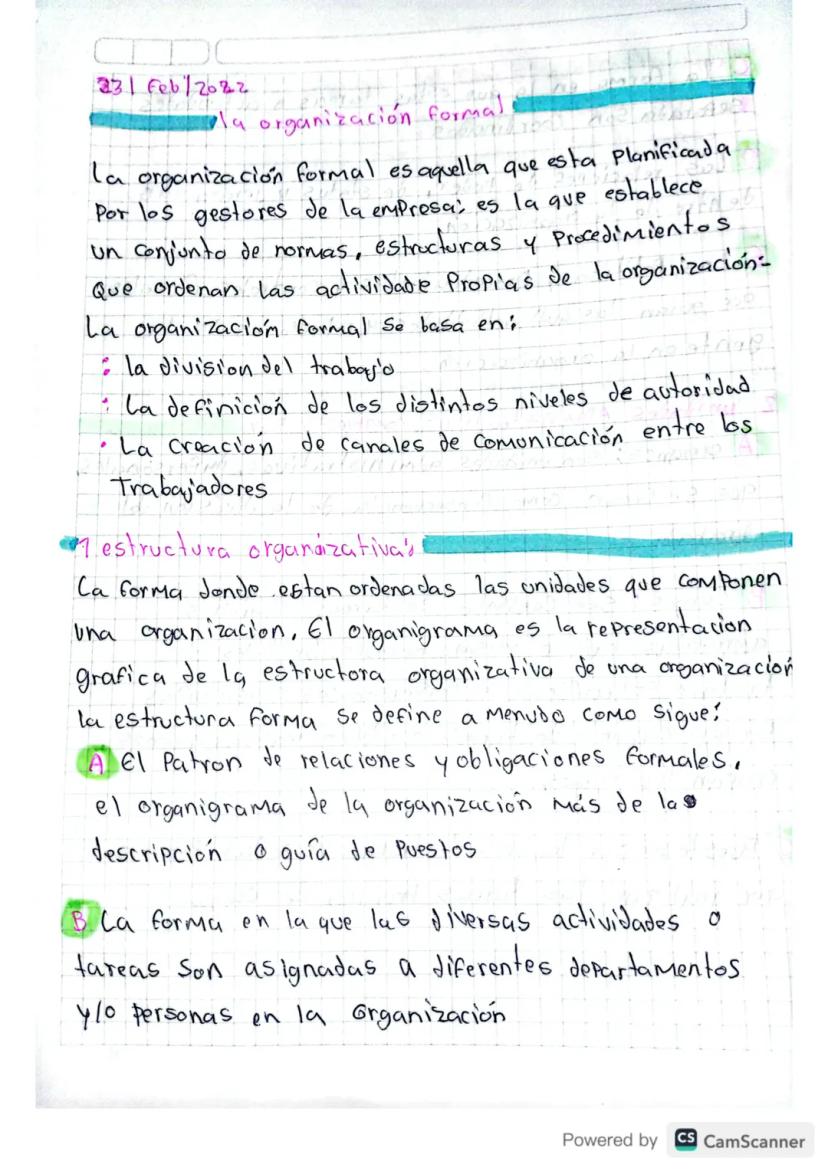 23/Feb/2022
la organización formal
La organización formal es aquella que esta Planificada
Por los gestores de la empresa: es la que establece
un conjunto de normas, estructuras y Procedimientos
Que ordenan las actividade Propias de la organización:-
La organización formal Se basa en:
: la division del trabajo
· La definición de los distintos niveles de autoridad
· La Creación de canales de Comunicación entre los
Trabajadores
1 estructura organizativa:
La forma donde estan ordenadas las unidades que componen
Una organizacion, El organigrama es la representacion
grafica de la estructora organizativa de una organización
la estructura forma Se define a menudo como sigue:
A El Patron de relaciones y obligaciones formales,
el organigrama de la organización más de las
descripción o guía de Puestos
B La forma en la que las diversas actividades o
tareas Son asignadas a diferentes departamentos
y/o personas en la organización
Powered by CS CamScanner